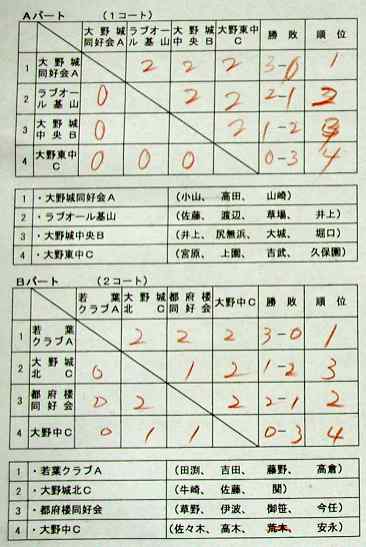 Aパート （1コート）
大野城同好会A ラブオール基山 大野城中央B 大野東中C 勝敗 順位
1 大野城同好会A 2 2 2 3-0 1
2 ラブオール基山 0 2 2 2-1 2
3 大野城中央B 0 2 1-2 3
4 大野東中C 0 0 0 0-3 4
1 ・大野城同好会A （小山、 高田、 山崎）
2 ・ラブオール基山 （佐藤、 渡辺、 草場、 井上）
3 ・大野城中央B （井上、 尻無浜、 大城、 堀口）
4 ・大野東中C （宮原、 上園、 吉武、 久保園）
Bパート （2コート）
若葉クラブA 大野城北C 都府楼同好会 大野中C 勝敗 順位
1 若葉クラブA 2 2 2 3-0 1
2 大野城北C 0 1 2 1-2 3
3 都府楼同好会 0 2 2 2-1 2
4 大野中C 0 1 1 0-3 4
1 ・若葉クラブA （田渕、 吉田、 藤野、 高倉）
2 ・大野城北C （牛崎、 佐藤、 関）
3 ・都府楼同好会 （草野、 伊波、 御笹、 今任）
4 ・大野中C （佐々木、 高木、 荒木、 安永）